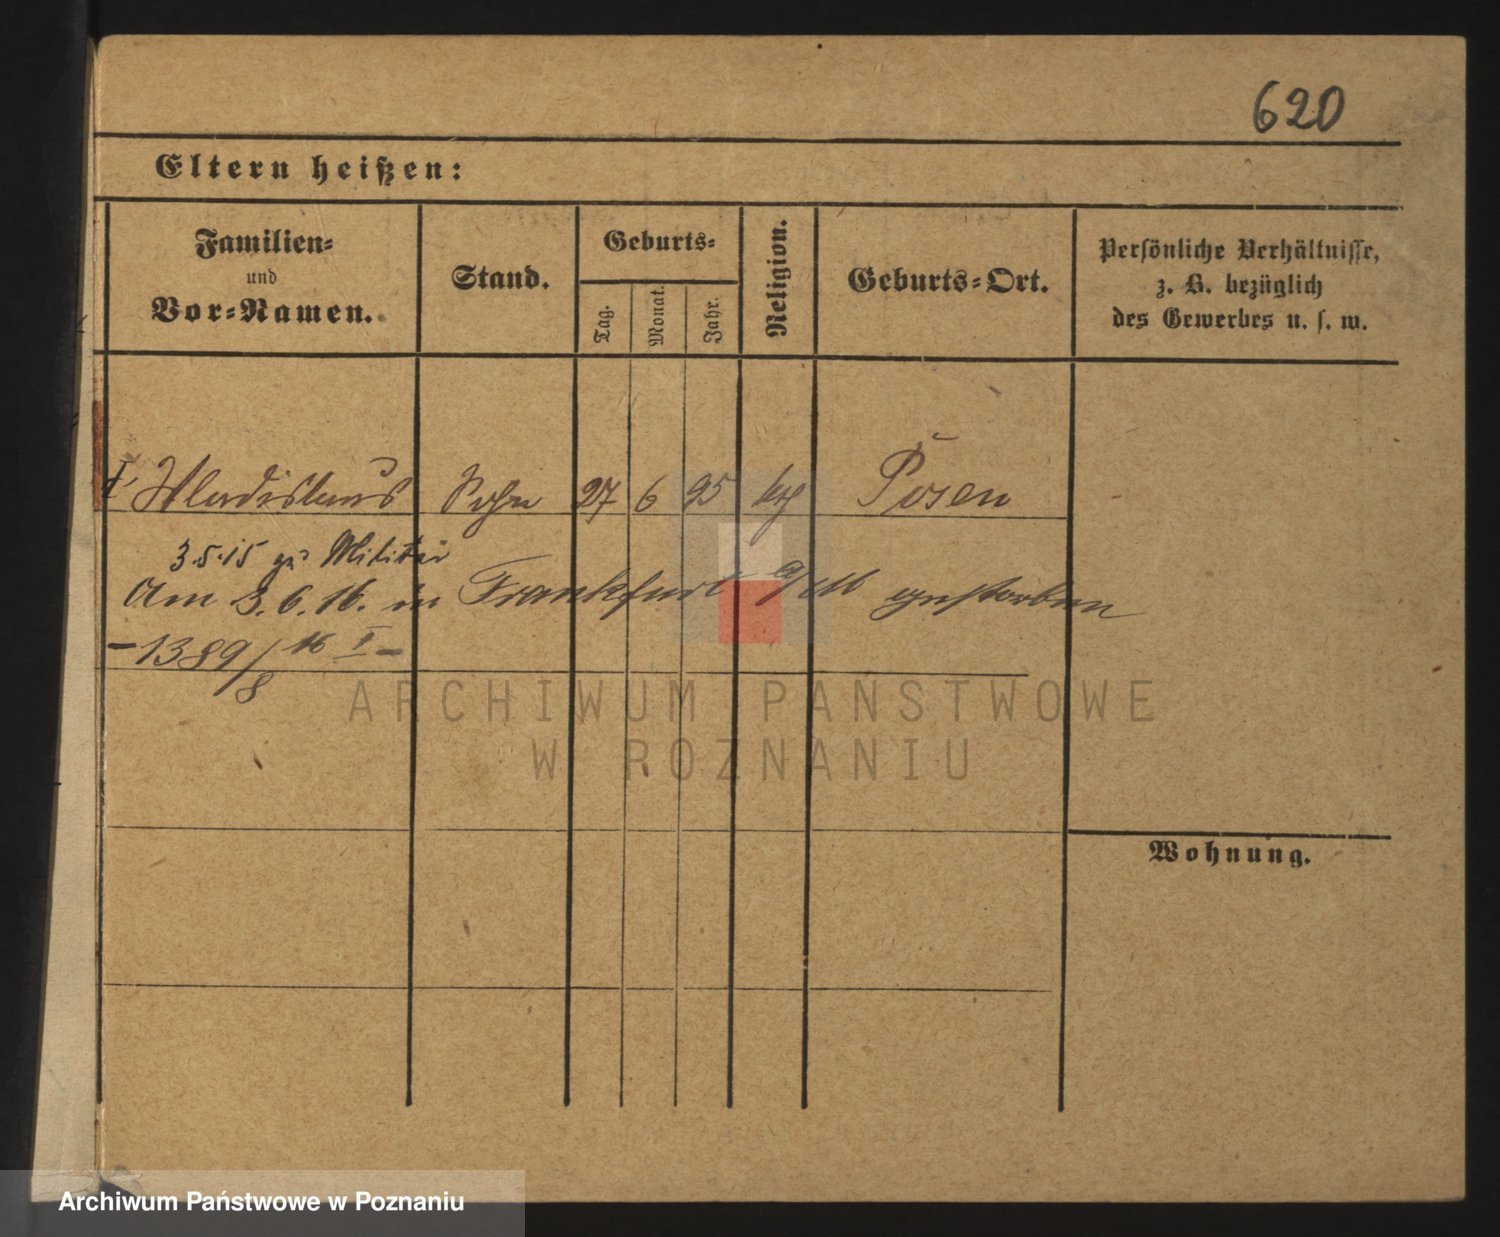 620
Eltern heißen:
Familien=
und
Vor=Namen.
Stand.
Geburts=
Tag.
Monat.
Jahr.
Religion.
Geburts=Ort.
Persönliche Verhältnisse,
z. B. bezüglich
des Gewerbes u. s. w.
Wladislaus Sohn 27 6 95 kg Posen
3.5.15 zu Militär
Am 3.6.16. in Frankfurt a/M gestorben
-1389/8 16 I-
ARCHIWUM PAŃSTWOWE
W POZNANIU
Wohnung.
Archiwum Państwowe w Poznaniu